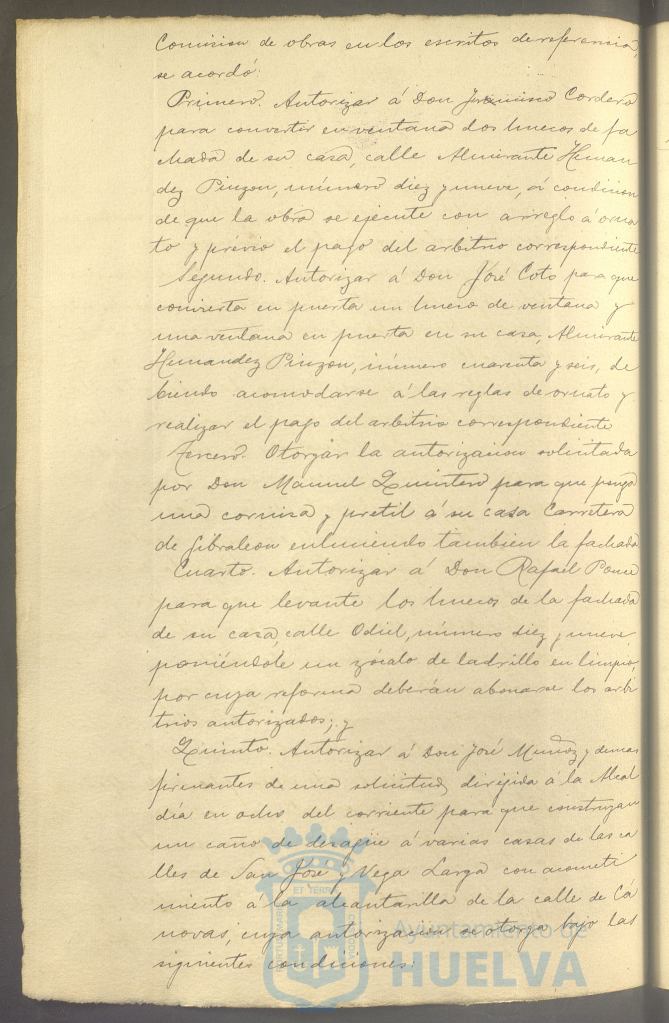 Comision de obras en los escritos de referencia,
se acordó:
Primero. Autorizar á Don Francisco Cordero
para convertir en ventana dos huecos de fa
chada de su casa, calle Almirante Hernan
dez Pinzon, número diez y nueve, á condicion
de que la obra se ejecute con arreglo á orna
to y prévio el pago del arbitrio correspondiente
Segundo. Autorizar á Don José Coto para que
convierta en puerta un hueco de ventana y
una ventana en puerta en su casa, Almirante
Hernandez Pinzon, número cuarenta y seis, de
biendo acomodarse á las reglas de ornato y
realizar el pago del arbitrio correspondiente
Tercero. Otorgar la autorizacion solicitada
por Don Manuel Quintero para que ponga
una cornisa y pretil á su casa Carretera
de Gibraleon enluciendo tambien la fachada
Cuarto. Autorizar á Don Rafael Ponce
para que levante los huecos de la fachada
de su casa, calle Odiel, número diez y nueve
poniéndole un zócalo de ladrillo en limpio,
por cuya reforma deberán abonarse los arbi
trios autorizados; y
Quinto. Autorizar á Don José Muñoz y demas
firmantes de una solicitud dirijida á la Alcal
día en ocho del corriente para que construyan
un caño de desagüe á varias casas de las ca
lles de San José y Vega Larga con acometi
miento á la alcantarilla de la calle de Cá
novas, cuya autorizacion se otorga bajo las
siguientes condiciones:
Ayuntamiento de
HUELVA